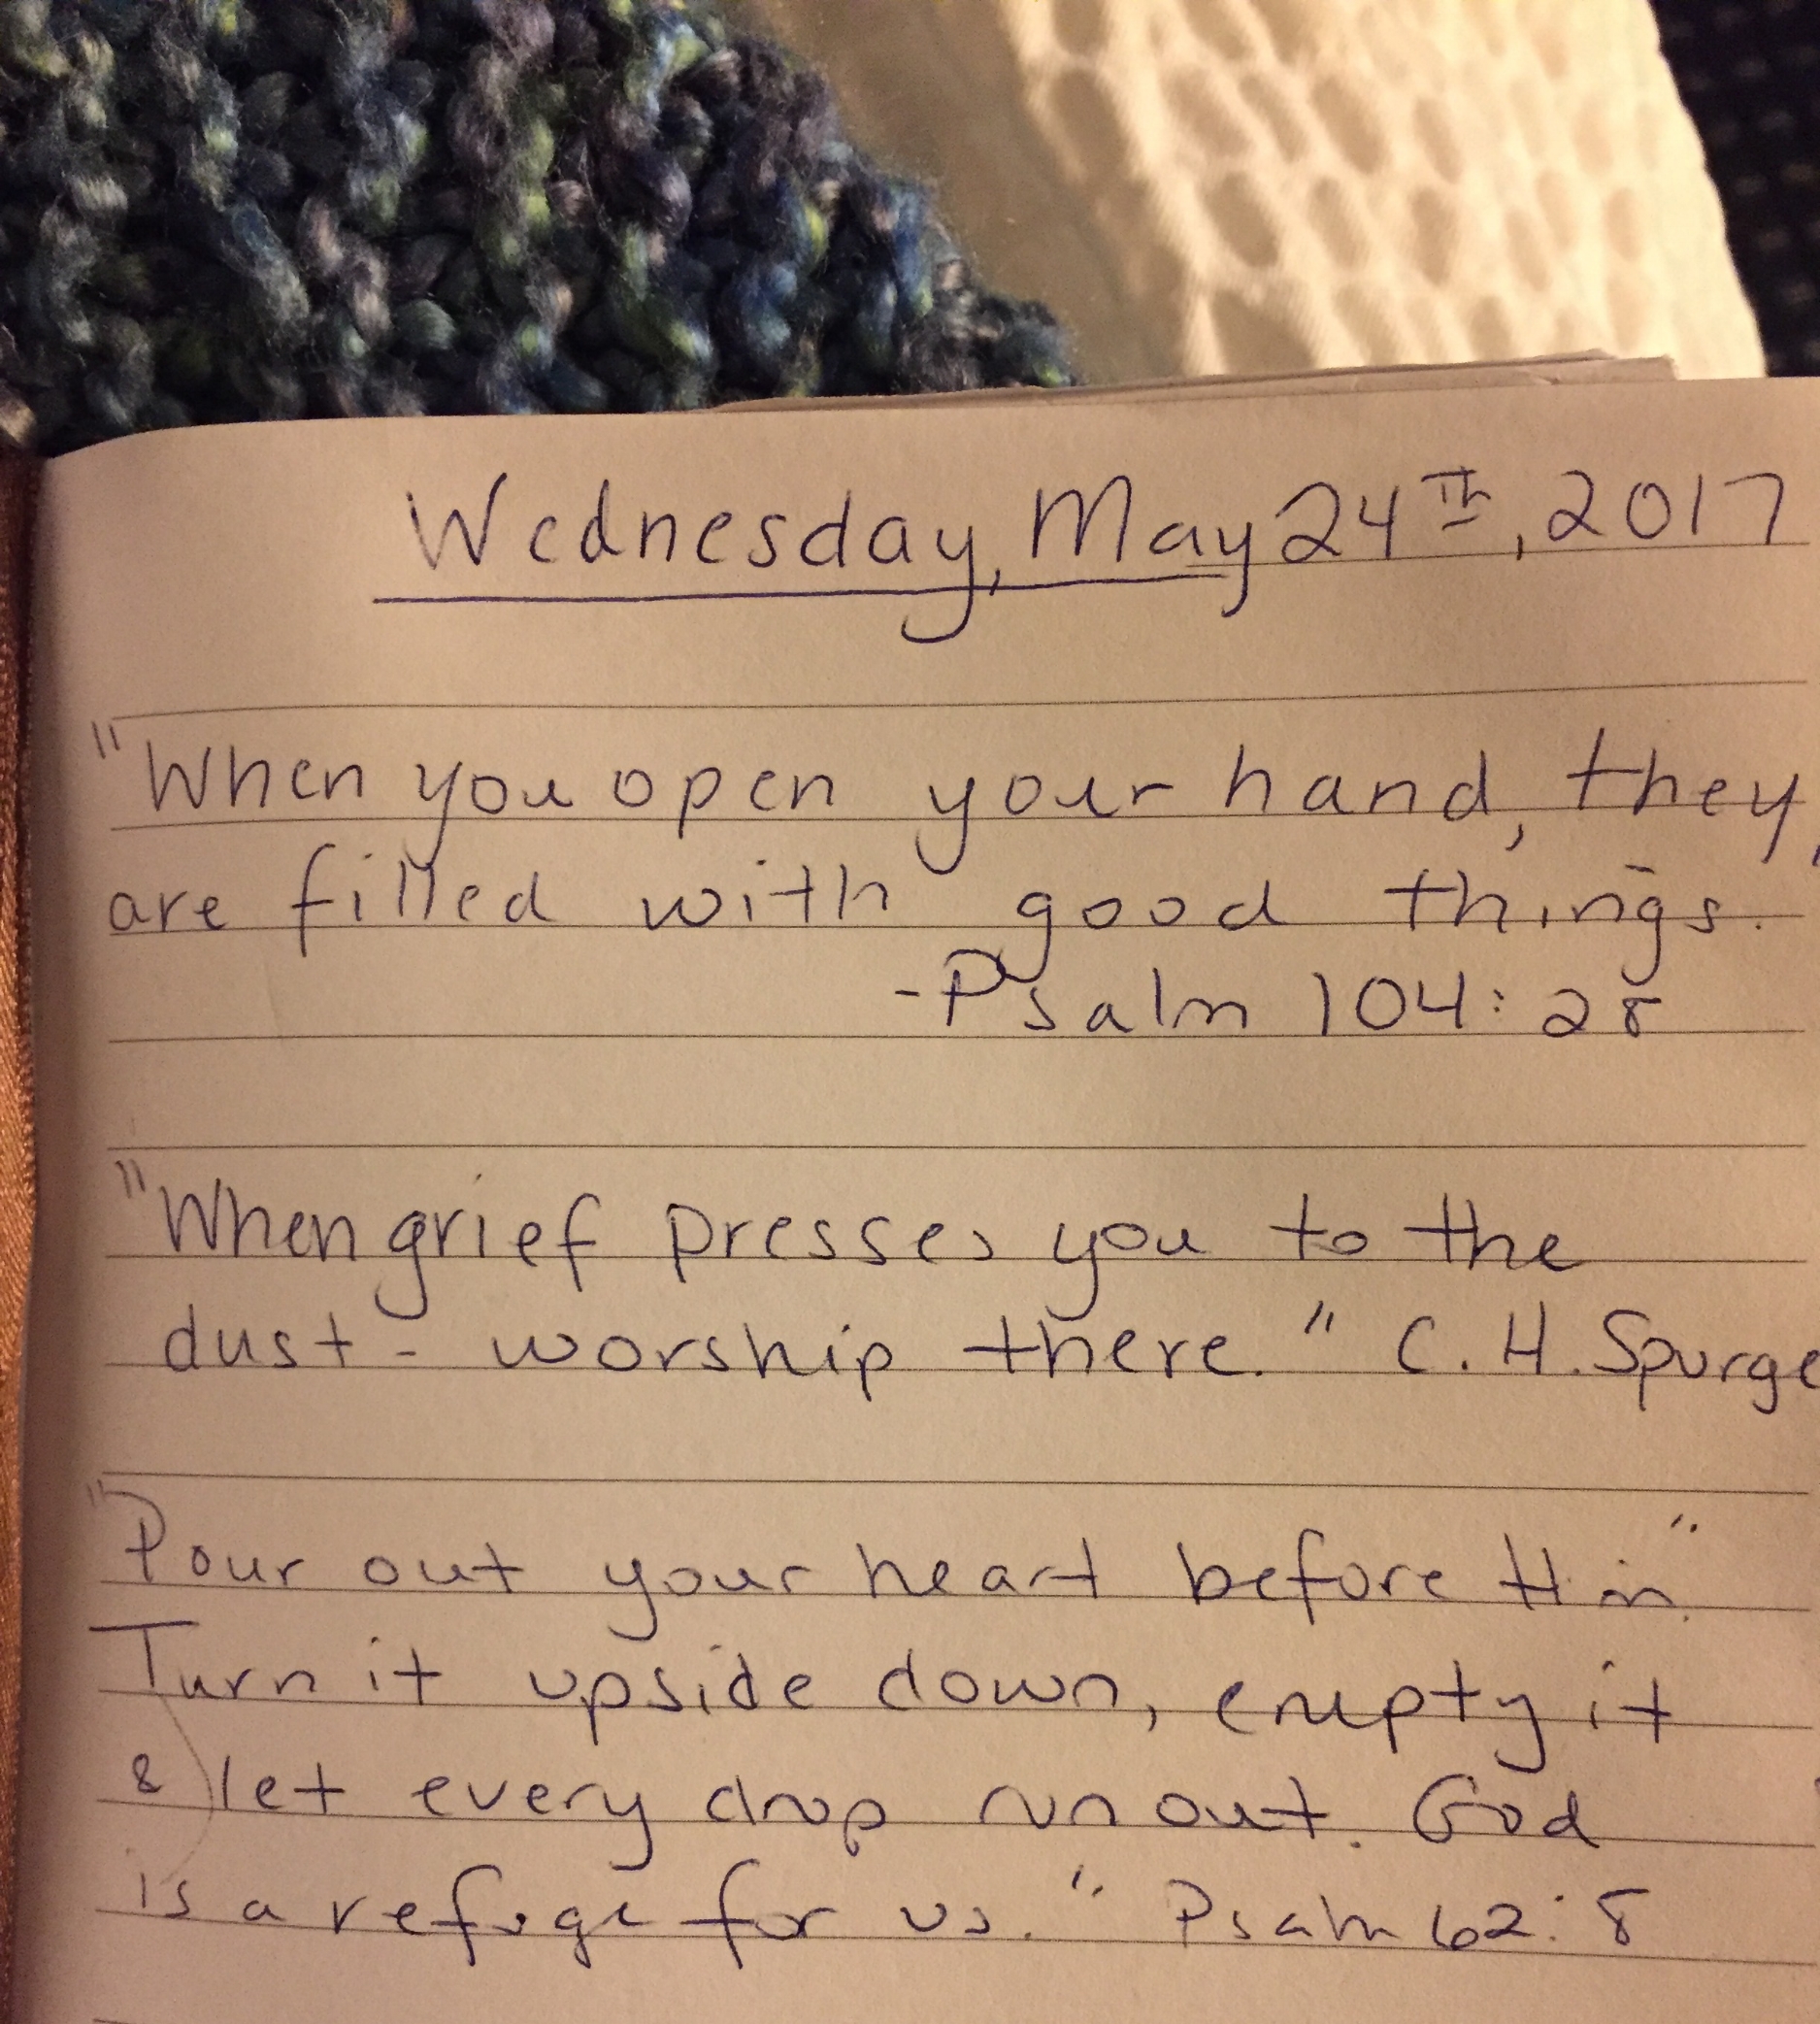 Wednesday, May 24th, 2017
"When you open your hand, they
are filled with good things."
-Psalm 104:28
"When grief presses you to the
dust - worship there." C. H. Spurge
"Pour out your heart before Him."
Turn it upside down, empty it
& let every drop run out. God
is a refuge for us." Psalm 62:8